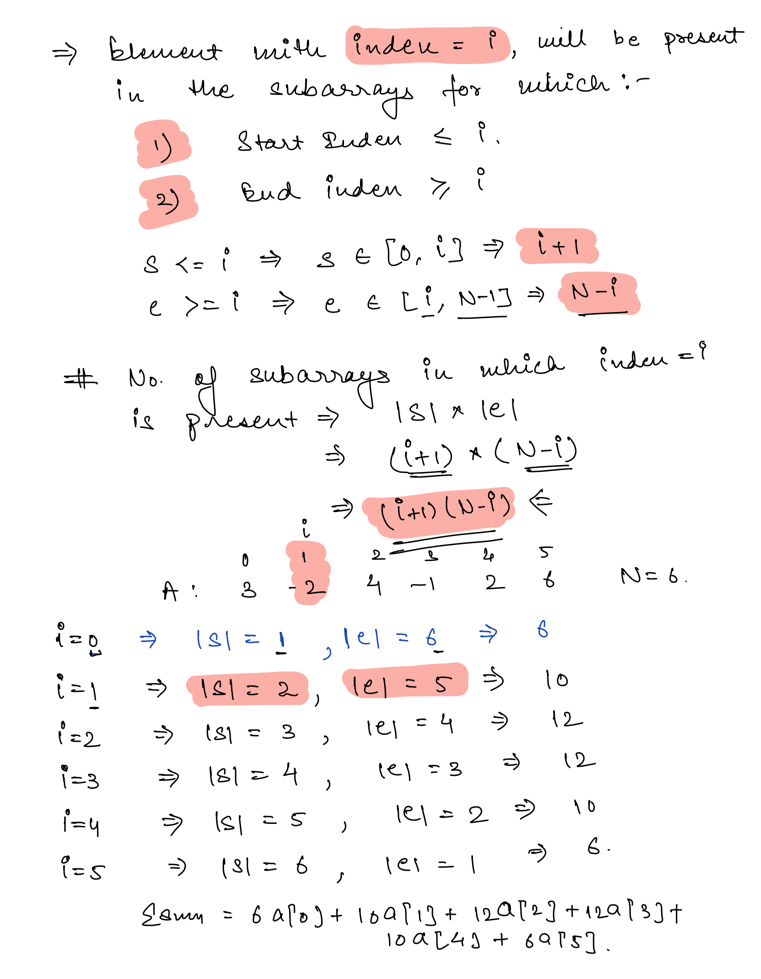 ⇒ Element with index = i, will be present
in the subarrays for which :-
1) Start Index ≤ i.
2) End index ≥ i
s <= i ⇒ s ∈ [0, i] ⇒ i+1
e >= i ⇒ e ∈ [i, N-1] ⇒ N-i
# No. of subarrays in which index = i
is present ⇒ |S| * |e|
⇒ (i+1) * (N-i)
⇒ (i+1)(N-i) ⇐
i
0 1 2 3 4 5
A : 3 -2 4 -1 2 6 N = 6.
i=0 ⇒ |S| = 1, |e| = 6 ⇒ 6
i=1 ⇒ |S| = 2, |e| = 5 ⇒ 10
i=2 ⇒ |S| = 3, |e| = 4 ⇒ 12
i=3 ⇒ |S| = 4, |e| = 3 ⇒ 12
i=4 ⇒ |S| = 5, |e| = 2 ⇒ 10
i=5 ⇒ |S| = 6, |e| = 1 ⇒ 6.
Σsum = 6a[0] + 10a[1] + 12a[2] + 12a[3] +
10a[4] + 6a[5].